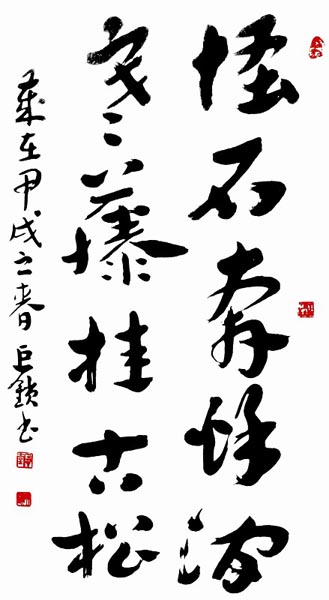 怪石奔秋澗
寒藤挂古松
歲在甲戌之春 巨鎖书